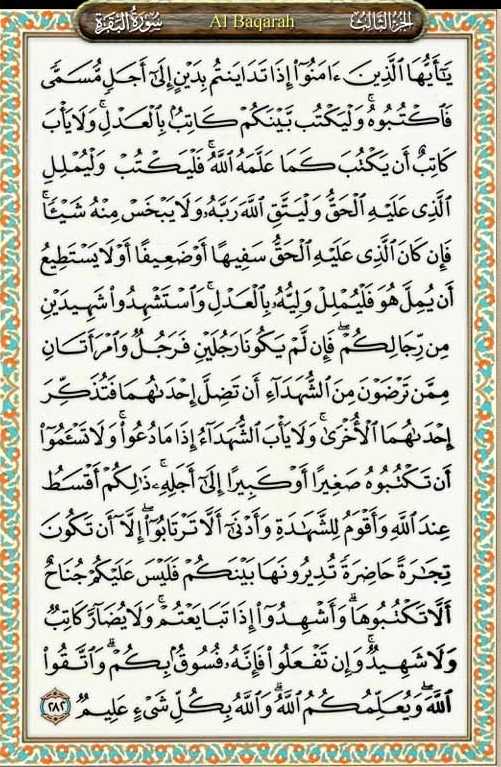 الجزء الثالث Al Baqarah سورة البقرة
يَٰٓأَيُّهَا ٱلَّذِينَ ءَامَنُوٓا۟ إِذَا تَدَايَنتُم بِدَيْنٍ إِلَىٰٓ أَجَلٍ مُّسَمًّى
فَٱكْتُبُوهُ ۚ وَلْيَكْتُب بَّيْنَكُمْ كَاتِبٌۢ بِٱلْعَدْلِ ۚ وَلَا يَأْبَ
كَاتِبٌ أَن يَكْتُبَ كَمَا عَلَّمَهُ ٱللَّهُ ۚ فَلْيَكْتُبْ وَلْيُمْلِلِ
ٱلَّذِى عَلَيْهِ ٱلْحَقُّ وَلْيَتَّقِ ٱللَّهَ رَبَّهُۥ وَلَا يَبْخَسْ مِنْهُ شَيْـًٔا ۚ
فَإِن كَانَ ٱلَّذِى عَلَيْهِ ٱلْحَقُّ سَفِيهًا أَوْ ضَعِيفًا أَوْ لَا يَسْتَطِيعُ
أَن يُمِلَّ هُوَ فَلْيُمْلِلْ وَلِيُّهُۥ بِٱلْعَدْلِ ۚ وَٱسْتَشْهِدُوا۟ شَهِيدَيْنِ
مِن رِّجَالِكُمْ ۖ فَإِن لَّمْ يَكُونَا رَجُلَيْنِ فَرَجُلٌ وَٱمْرَأَتَانِ
مِمَّن تَرْضَوْنَ مِنَ ٱلشُّهَدَآءِ أَن تَضِلَّ إِحْدَىٰهُمَا فَتُذَكِّرَ
إِحْدَىٰهُمَا ٱلْأُخْرَىٰ ۚ وَلَا يَأْبَ ٱلشُّهَدَآءُ إِذَا مَا دُعُوا۟ ۚ وَلَا تَسْـَٔمُوٓا۟
أَن تَكْتُبُوهُ صَغِيرًا أَوْ كَبِيرًا إِلَىٰٓ أَجَلِهِۦ ۚ ذَٰلِكُمْ أَقْسَطُ
عِندَ ٱللَّهِ وَأَقْوَمُ لِلشَّهَٰدَةِ وَأَدْنَىٰٓ أَلَّا تَرْتَابُوٓا۟ ۖ إِلَّآ أَن تَكُونَ
تِجَٰرَةً حَاضِرَةً تُدِيرُونَهَا بَيْنَكُمْ فَلَيْسَ عَلَيْكُمْ جُنَاحٌ
أَلَّا تَكْتُبُوهَا ۗ وَأَشْهِدُوٓا۟ إِذَا تَبَايَعْتُمْ ۚ وَلَا يُضَآرَّ كَاتِبٌ
وَلَا شَهِيدٌ ۚ وَإِن تَفْعَلُوا۟ فَإِنَّهُۥ فُسُوقٌۢ بِكُمْ ۗ وَٱتَّقُوا۟
ٱللَّهَ ۖ وَيُعَلِّمُكُمُ ٱللَّهُ ۗ وَٱللَّهُ بِكُلِّ شَىْءٍ عَلِيمٌ ٢٨٢